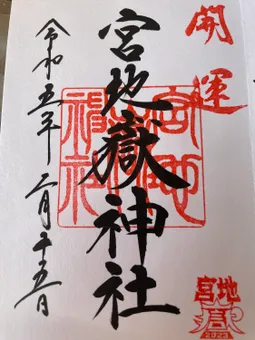 開運
宮地嶽神社
令和五年二月十五日
宮地嶽神社
宮地